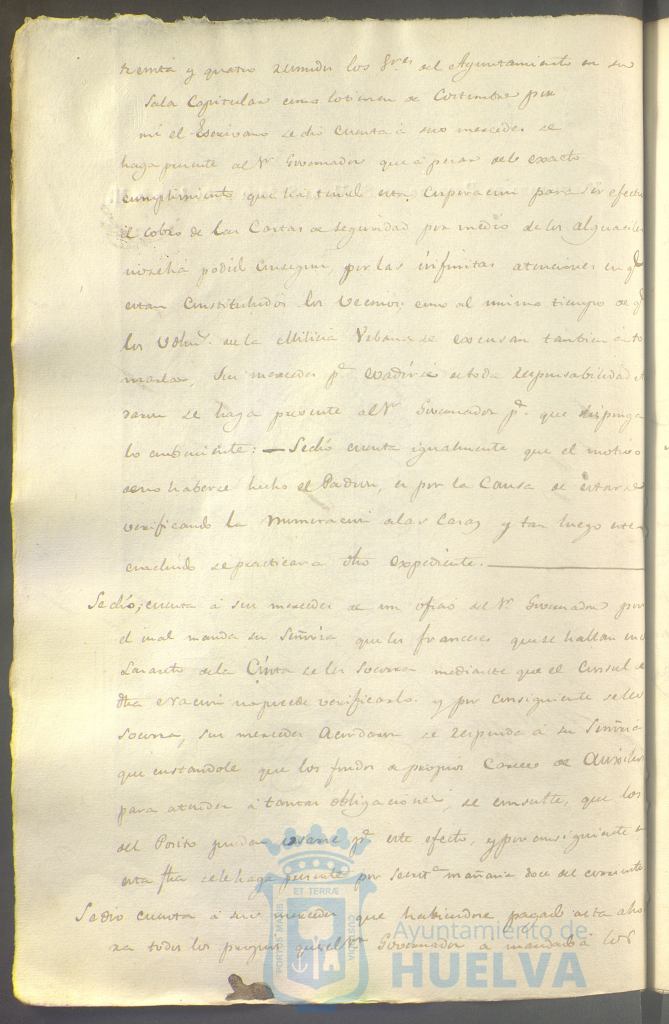 treinta y quatro reunidos los Sres del Ayuntamiento en su
Sala Capitular como lo tienen de Costumbre por
mi el Escrivano se dió cuenta á sus mercedes se
haga presente al Sr Governador que á pesar del exacto
cumplimiento que ha tenido esta Corporacion para ser efectivo
el cobro de las Cartas de seguridad por medio de los Alguaciles
no se ha podido conseguir, por las infinitas atenciones en qe
estan Constituhidos los Vecinos; como al mismo tiempo de qe
los Volunts de la Milicia Urbana se excusan tambien á to
marlas, sus mercedes pa evadirse de toda responsabilidad
se haga presente al Sr Governador pa que disponga
lo combeniente: — Se dió cuenta igualmente que el motivo
de no haberse hecho el Padron, es por la Causa de estarse
verificando la numeracion de las Casas y tan luego este
concluido se practicara dho expediente.
Se dió, cuenta á sus mercedes de un oficio del Sr Governador por
el cual manda su Señoria que los franceses que se hallan en el
Lazareto de la Cinta se les socorra mediante que el Consul de
dha Nacion no puede verificarlo. y por consiguiente se les
Socorra, sus mercedes Acordaron se responda á su Señoria
que constandole que los fondos de propios Carecen de Auxilios
para atender á tantas obligaciones, se consulte, que los
del Posito puedan usarse pa este efecto, y por consiguiente
esta fha se le haga presente por Secreta mañana doce del corriente
Se dio cuenta á sus mercedes que habiendose pagado asta aho
ra todos los propios que el Sr Governador á mandado
PORTUS MARIS
ET TERRÆ
CUSTODIA
Ayuntamiento de
HUELVA